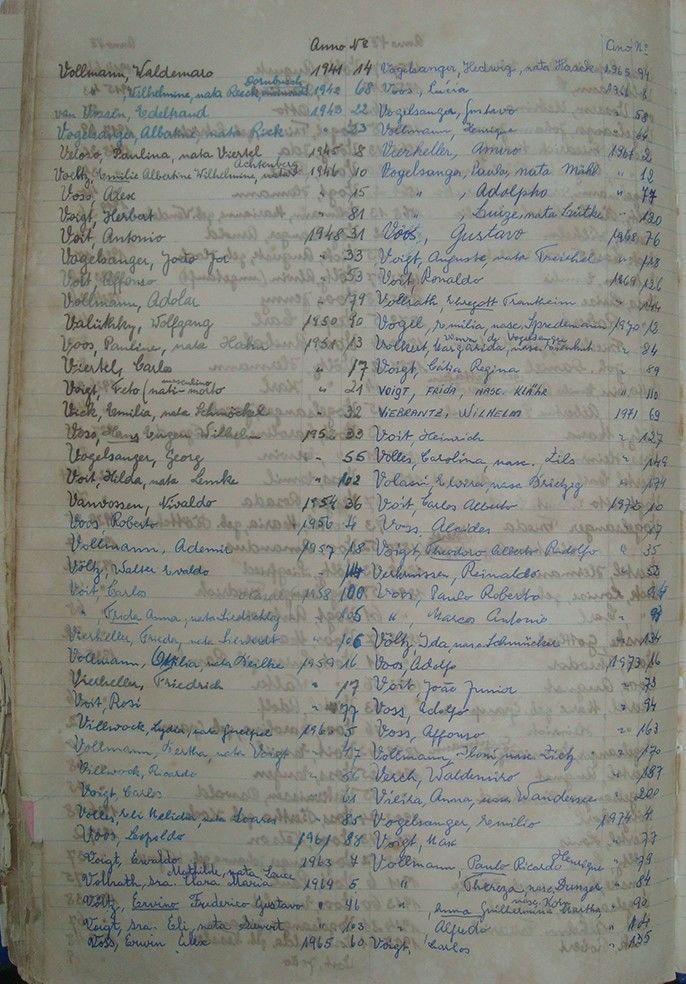 Anno Nº
Vollmann, Waldemaro 1941 14
" , Wilhelmine, nata Reeck 1942 68
Dornbusch
van Vossen, Edeltraud 1943 22
Vogelsanger, Albatine nata Rieck " 23
Veloso, Paulina, nata Viertel 1945 8
Voeltz, Emilie Albertine Wilhelmine, nata 1946 10
Achtenberg
Voss, Alex " 15
Voigt, Herbert " 81
Voit, Antonio 1948 31
Vogelsanger, João " 33
Voit, Affonso " 53
Vollmann, Adolar " 79
Wolfgang 1950 90
Voos, Pauline, nata Hahn 1951 13
Viertel, Carlo " 17
Voigt, Feto (nati-morto " 21
masculino
Vick, Emilia, nata Schmöckel " 32
Voss, Hans Eugen Wilhelm 1952 33
Vogelsanger, Georg " 55
Voit, Hilda, nata Lemke " 102
Vanvossen, Nivaldo 1954 36
Voos Roberto 1956 4
Vollmann, Ademir 1957 18
Völtz, Walter Evaldo "
Voit, Carlos 1958 100
" , Frida Anna, nata 105
Vierheller, Frieda, nata " 106
Vollmann, Ottilia nata 1959 16
Vierheller, Friedrich " 17
Voit, Rosi " 77
Villwock, Lydia, nata 1960 5
Vollmann, Bertha, nata Voigt " 47
Villwock, Ricardo " 56
Voigt Carlos " 61
Volles, nata Soares " 85
Voos, Leopoldo 1961 84
Voigt, Ewaldo 1963 7
Mathilde, nata
Vollrath, sra. Clara Maria 1964 5
Völtz, Erwino Frederico Gustavo " 46
Voigt, sra. Eli, nata Sievert " 103
Voss, Erwin Alex 1965 60
Ano Nº
Vogelsanger, Hedwig, nata Haack 1965 94
Voos, Lúcia 1966 6
Vogelsanger, Gustavo " 58
Vollmann, Henrique " 64
Vierheller, Amiro 1967 2
Vogelsanger, Paula, nata Mühl " 12
" , Adolpho " 77
" , Luiza, nata Lütke " 120
Voos, Gustavo 1968 76
Voigt, Auguste, nata Treichel " 118
Voit, Ronaldo 1969 126
Vollrath, Traugott Frankheim " 144
Vogel, Emilia, nasc. Spredemann 1970 12
Volkert, Margarida, nasc. " 84
de Vogelsanger
Voigt, Célia Regina " 89
VOIGT, FRIDA, NASC. KLÄHR " 110
VIEBRANTZ, WILHELM 1971 69
Voit, Heinrich " 127
Volles, Carolina, nasc. Zils " 149
Elvira, nasc Brietzig " 174
Voit, Carlos Alberto 1972 10
Voss. Alcides " 17
Voigt, Theodoro Alberto Rudolfo " 35
Vermissen, Reinaldo " 50
Voos, Paulo Roberto " 94
" , Marcos Antonio "
Völtz, Ida nasc. Schmücker " 134
Voos, Adolfo 1973 16
Voit João Junior " 73
Voss, Adolfo " 94
Voss, Affonso " 163
Vollmann, nasc. " 170
Verch, Waldemiro " 187
Anna, nasc. Wandersee " 200
Vogelsanger, Emilio 1974 4
Voigt, Max " 77
Vollmann, Paulo Ricardo Henrique " 79
" Thereza, nasc. Bunger " 84
nasc. Kohn
" , Anna Guilhermina Martha " 90
" Alfredo " 104
Voigt, Carlos " 135